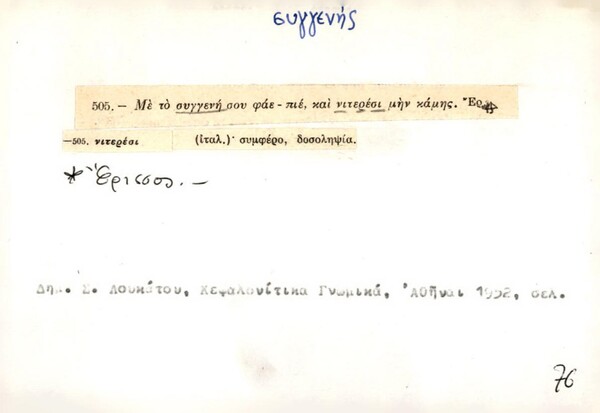 συγγενής
505. — Μὲ τὸ συγγενή σου φάε - πιέ, καὶ νιτερέσι μὴν κάμης. Ἐρ.*
—505. νιτερέσι (ἰταλ.)· συμφέρο, δοσοληψία.
* Ἔρισσος. —
Δημ. Σ. Λουκάτου, Κεφαλονίτικα Γνωμικά, Ἀθῆναι 1952, σελ.
76